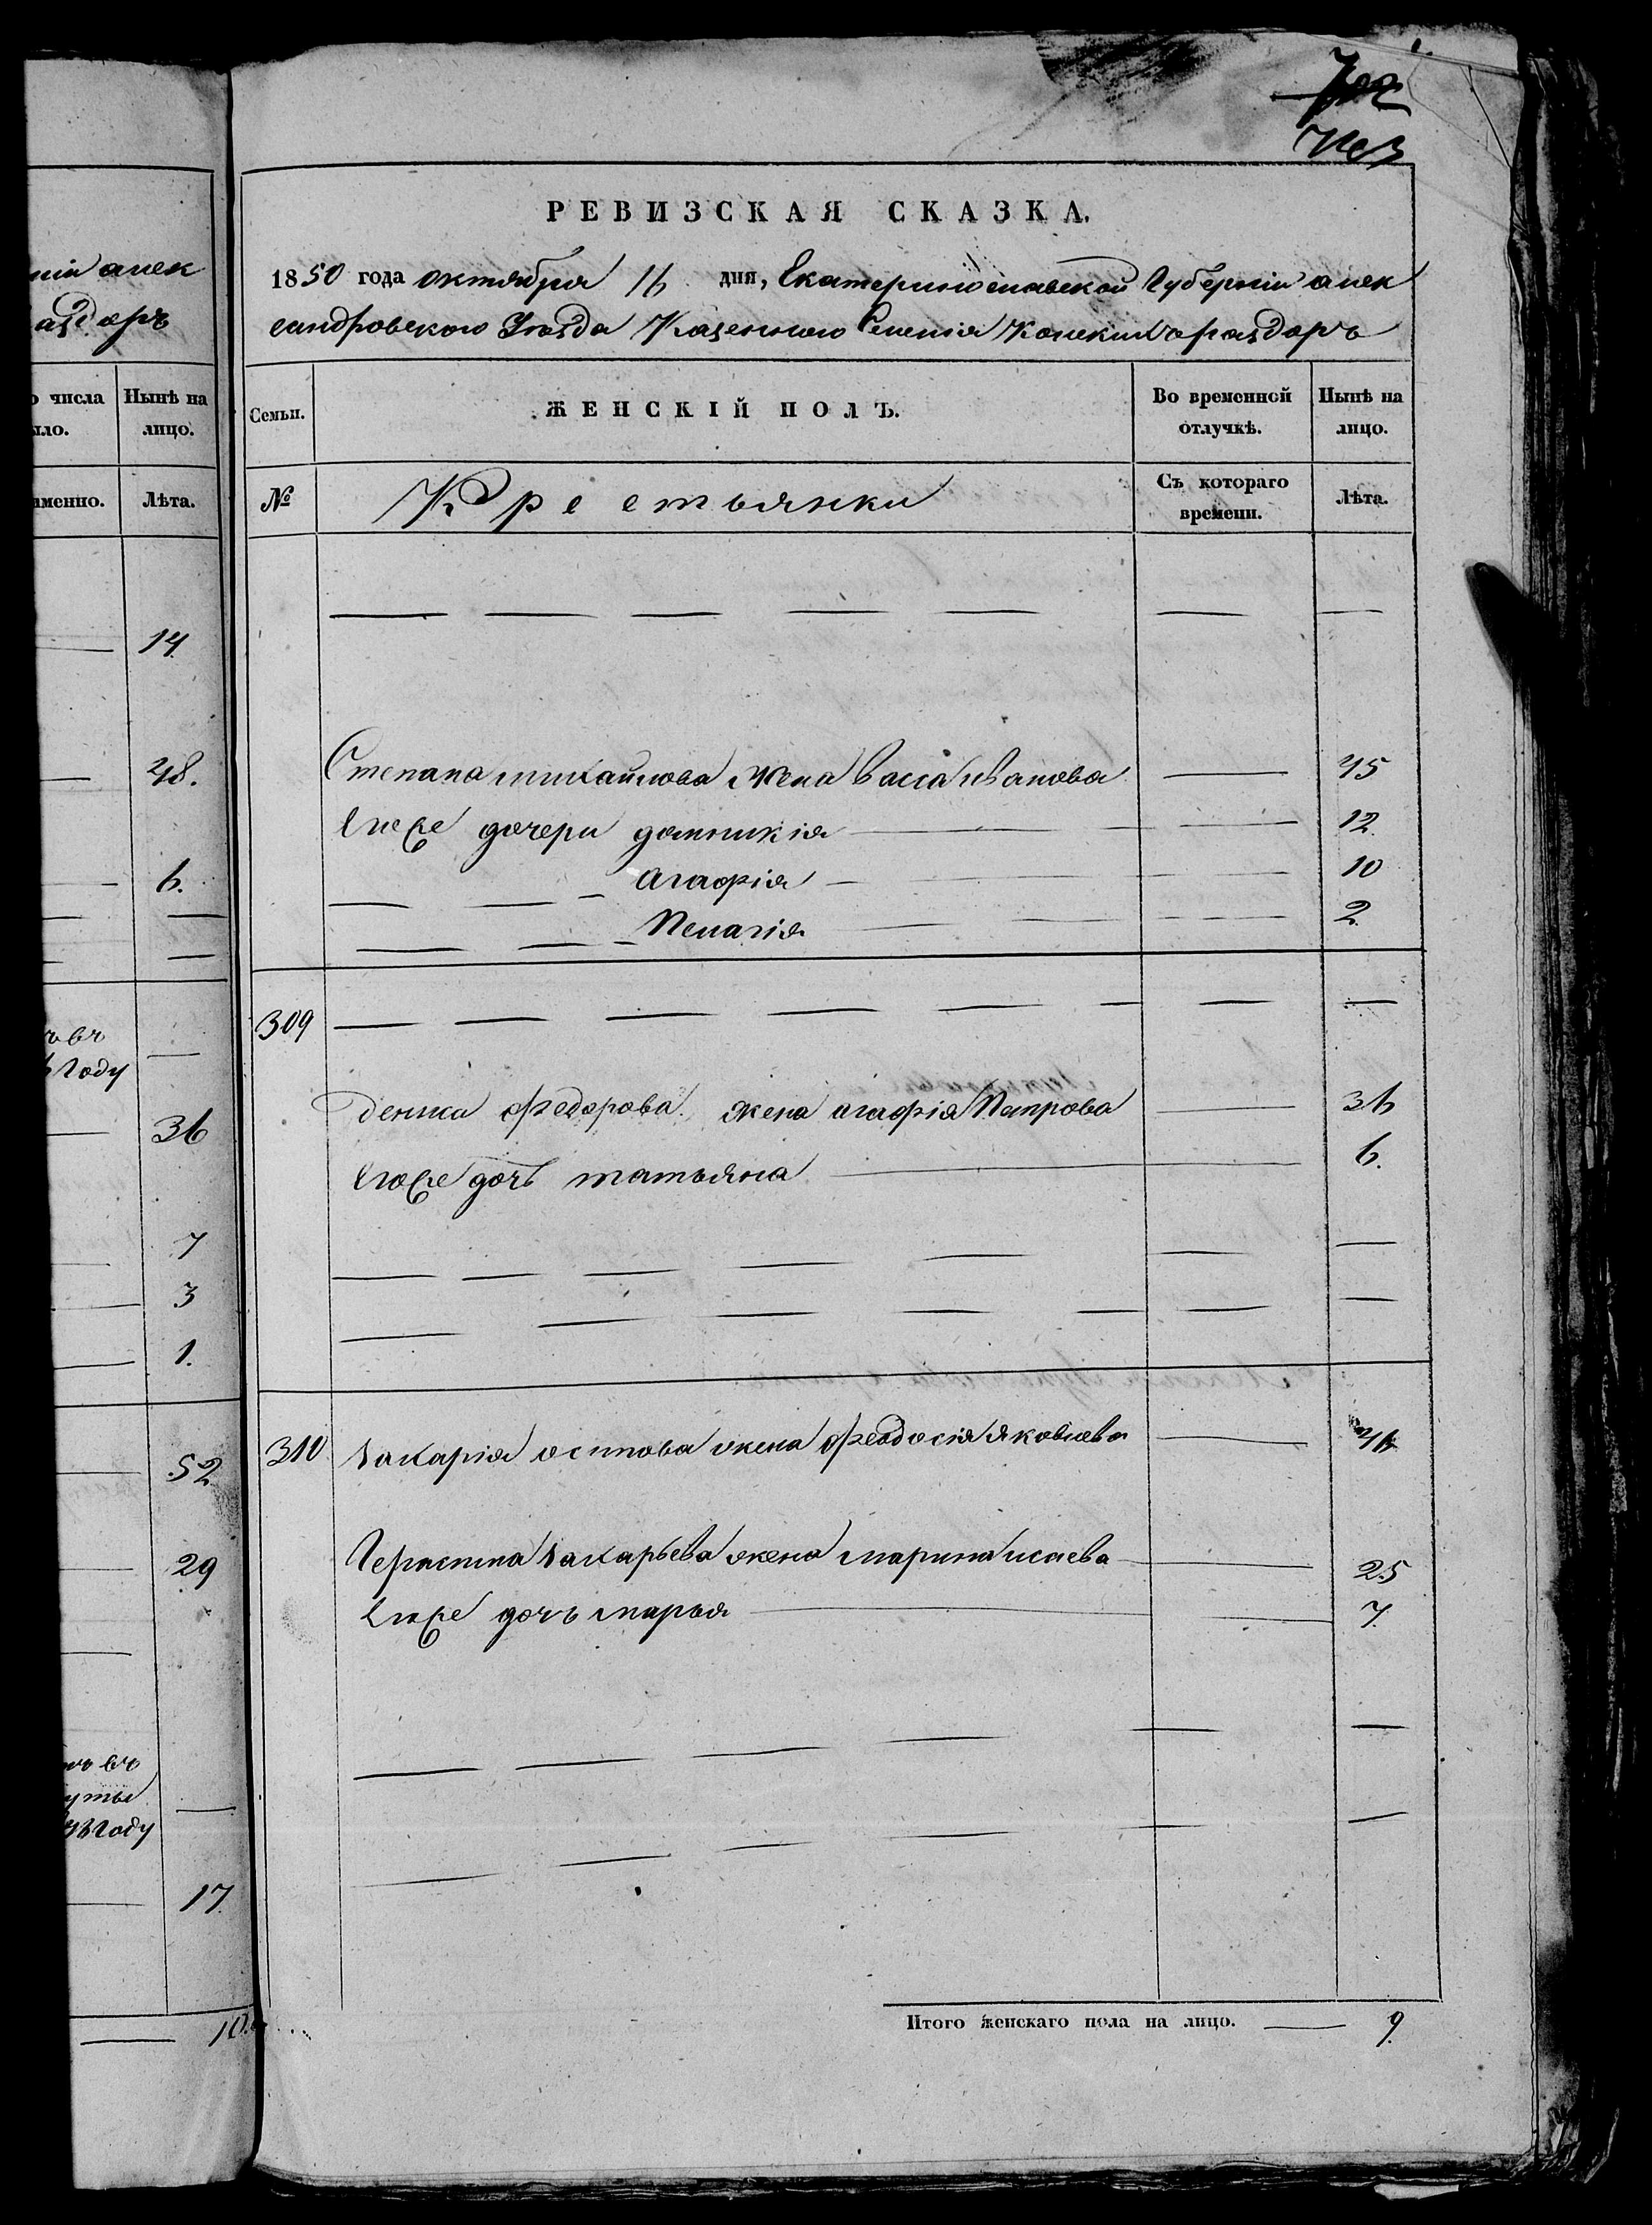 ній алек
аздоръ
о числа Нынѣ на
ыло. лицо.
именно. Лѣта.
14.
48.
6.
ъ въ
Году
36
7
3
1.
52
29
ъ въ
Году
17.
10.
РЕВИЗСКАЯ СКАЗКА.
1850 года октября 16 дня, Екатеринославской Губерніи алек
сандровского Уѣзда Казенного Селенія Конскихъ раздоръ
Семьи. ЖЕНСКІЙ ПОЛЪ. Во временной отлучкѣ. Нынѣ на лицо.
№ Крестьянки Съ котораго времени. Лѣта.
Степана михайлова жена Васса иванова 45
Егоже дочери домникія 12.
агафія 10
Пелагія 2.
309
дениса федорова жена агафія Петрова 36
Егоже дочь татьяна 6.
310 захарія осипова жена феодосія яковлева
захарьева жена марина исаева 25
Егоже дочъ марья 7.
Итого женскаго пола на лицо. 9.